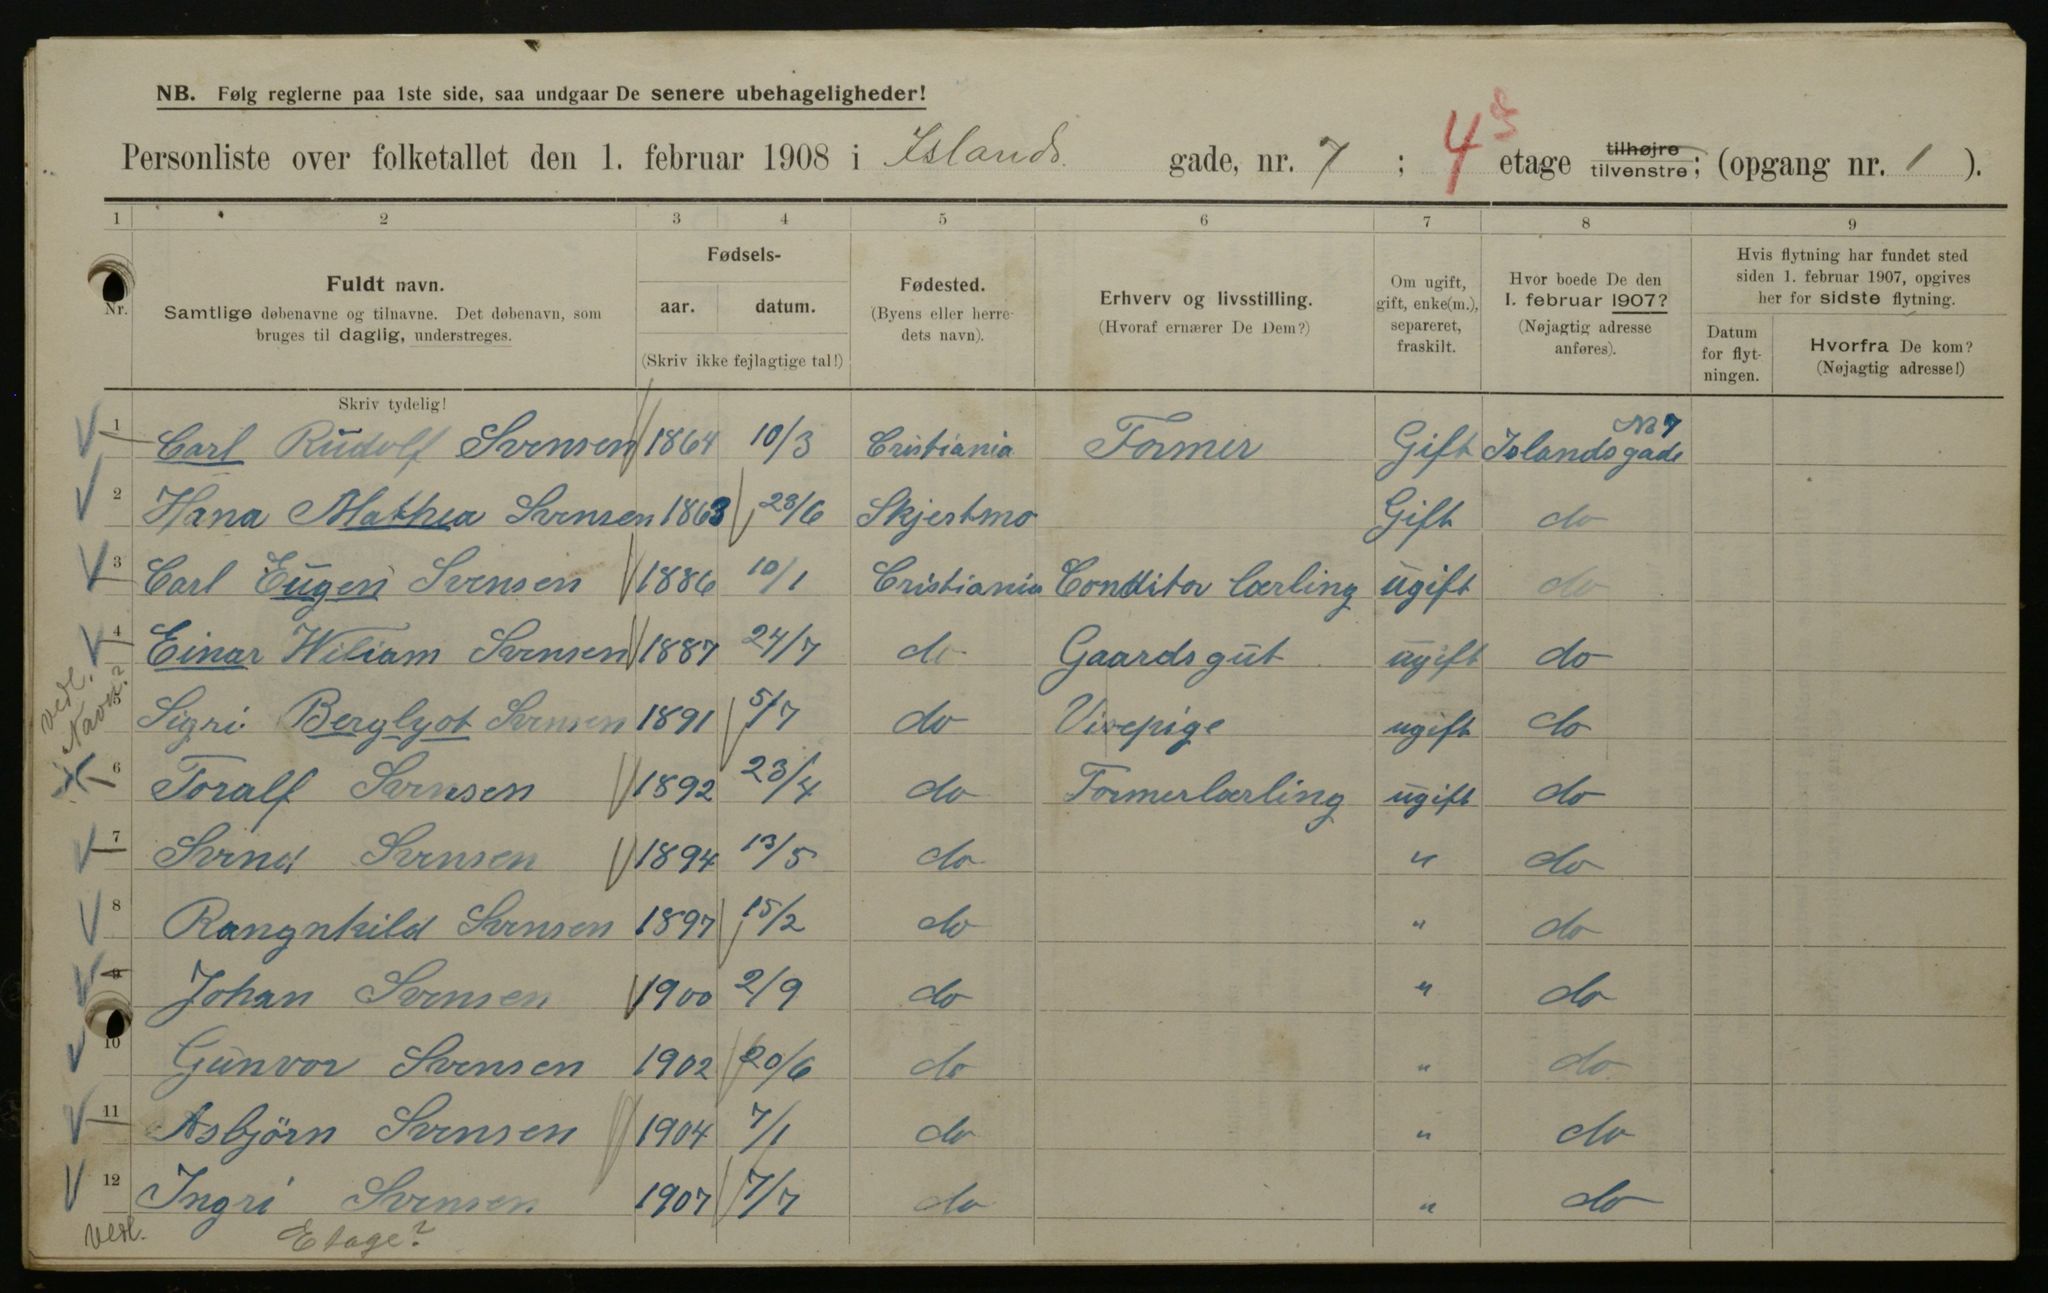 NB. Følg reglerne paa 1ste side, saa undgaar De senere ubehageligheder!
Personliste over folketallet den 1. februar 1908 i Islands gade, nr. 7 ; 4 etage tilhøjre tilvenstre; (opgang nr. 1 ).
1 2 3 4 5 6 7 8 9
Nr.
Fuldt navn.
Samtlige døbenavne og tilnavne. Det døbenavn, som
bruges til daglig, understreges.
Fødsels-
aar. datum.
(Skriv ikke fejlagtige tal!)
Fødested.
(Byens eller herre-
dets navn).
Erhverv og livsstilling.
(Hvoraf ernærer De Dem?)
Om ugift,
gift, enke(m.),
separeret,
fraskilt.
Hvor boede De den
1. februar 1907?
(Nøjagtig adresse
anføres).
Hvis flytning har fundet sted
siden 1. februar 1907, opgives
her for sidste flytning.
Datum
for flyt-
ningen.
Hvorfra De kom?
(Nøjagtig adresse!)
Skriv tydelig!
1 Carl Rudolf Svensen 1864 10/3 Cristiania Former Gift Islandsgade No 7
2 Hana Mathea Svensen 1863 23/6 Skjestmo Gift do
3 Carl Eugen Svensen 1886 10/1 Cristiania Conditor lærling ugift do
4 Einar Wiliam Svensen 1887 24/7 do Gaardsgut ugift do
vedl. Navn?
5 Sigri Berglyot Svensen 1891 5/7 do Visepige ugift do
6 Toralf Svensen 1892 23/4 do Formerlærling ugift do
7 Svend Svensen 1894 13/5 do " do
8 Rangnhild Svensen 1897 15/2 do " do
9 Johan Svensen 1900 2/9 do " do
10 Gunvor Svensen 1902 20/6 do " do
11 Asbjörn Svensen 1904 7/1 do " do
12 Ingri Svensen 1907 7/7 do " do
vedl. Etage?